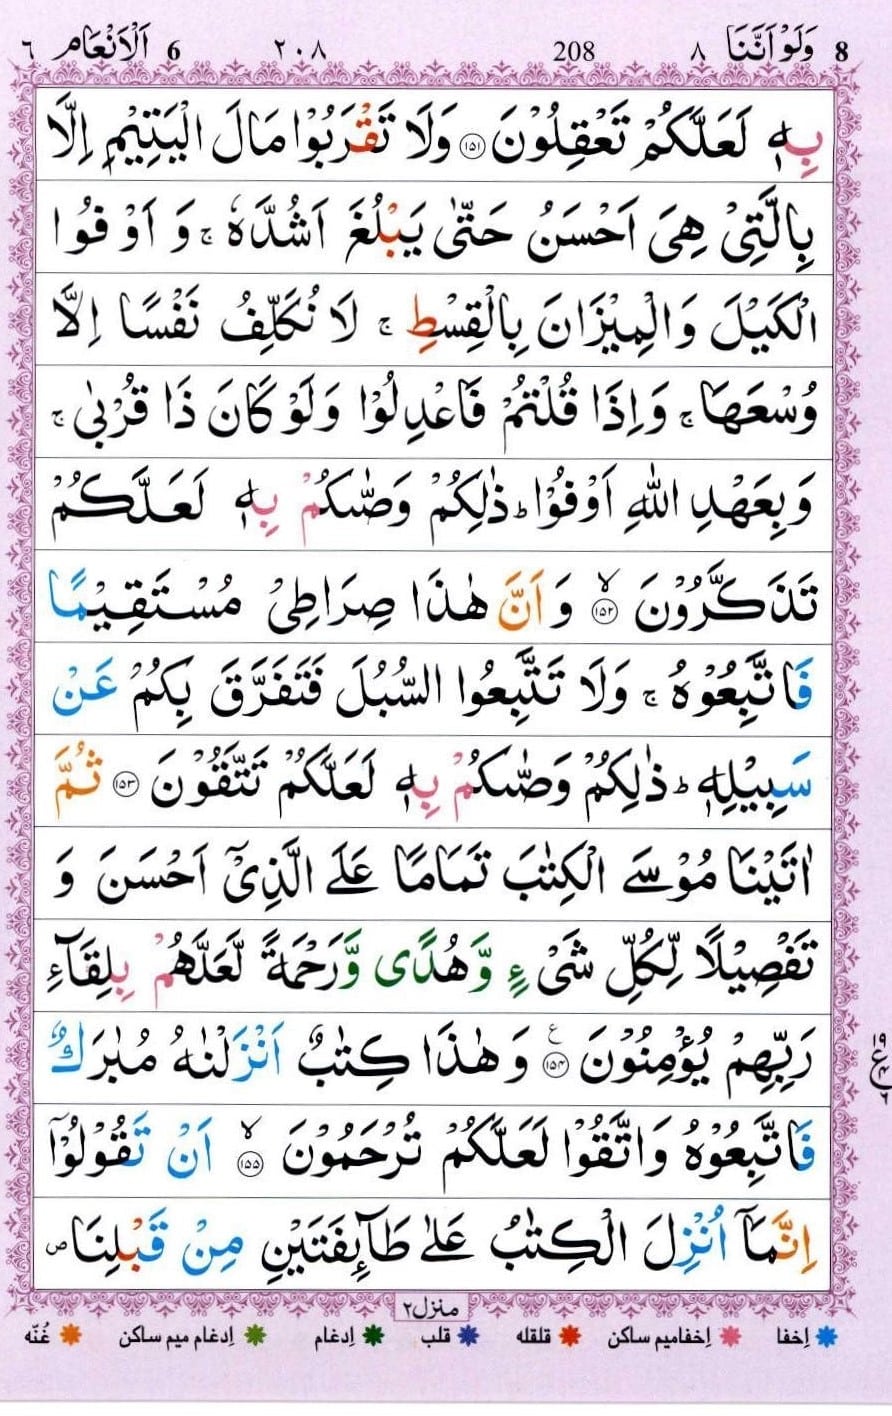 8 وَلَوْ اَنَّنَا ٨ 208 ٢٠٨ 6 اَلْاَنْعَام ٦
بِهٖ لَعَلَّكُمْ تَعْقِلُوْنَ ﴿۱۵۱﴾ وَلَا تَقْرَبُوْا مَالَ الْيَتِيْمِ اِلَّا
بِالَّتِيْ هِيَ اَحْسَنُ حَتّٰى يَبْلُغَ اَشُدَّهٗ ۚ وَ اَوْفُوا
الْكَيْلَ وَالْمِيْزَانَ بِالْقِسْطِ ۚ لَا نُكَلِّفُ نَفْسًا اِلَّا
وُسْعَهَا ۚ وَاِذَا قُلْتُمْ فَاعْدِلُوْا وَلَوْ كَانَ ذَا قُرْبٰى ۚ
وَبِعَهْدِ اللّٰهِ اَوْفُوْا ؕ ذٰلِكُمْ وَصّٰىكُمْ بِهٖ لَعَلَّكُمْ
تَذَكَّرُوْنَ ﴿۱۵۲﴾ ۙ وَ اَنَّ هٰذَا صِرَاطِيْ مُسْتَقِيْمًا
فَاتَّبِعُوْهُ ۚ وَلَا تَتَّبِعُوا السُّبُلَ فَتَفَرَّقَ بِكُمْ عَنْ
سَبِيْلِهٖ ؕ ذٰلِكُمْ وَصّٰىكُمْ بِهٖ لَعَلَّكُمْ تَتَّقُوْنَ ﴿۱۵۳﴾ ثُمَّ
اٰتَيْنَا مُوْسَى الْكِتٰبَ تَمَامًا عَلَى الَّذِيْٓ اَحْسَنَ وَ
تَفْصِيْلًا لِّكُلِّ شَيْءٍ وَّهُدًى وَّرَحْمَةً لَّعَلَّهُمْ بِلِقَآءِ
رَبِّهِمْ يُؤْمِنُوْنَ ﴿۱۵۴﴾ ع وَ هٰذَا كِتٰبٌ اَنْزَلْنٰهُ مُبٰرَكٌ
١٩ ع ٤ ٦
فَاتَّبِعُوْهُ وَاتَّقُوْا لَعَلَّكُمْ تُرْحَمُوْنَ ﴿۱۵۵﴾ ۙ اَنْ تَقُوْلُوْٓا
اِنَّمَآ اُنْزِلَ الْكِتٰبُ عَلٰى طَآئِفَتَيْنِ مِنْ قَبْلِنَا ۪
منزل ٢
اِخفا اِخفامیم ساکن قلقله قلب اِدغام اِدغام میم ساکن غُنّه